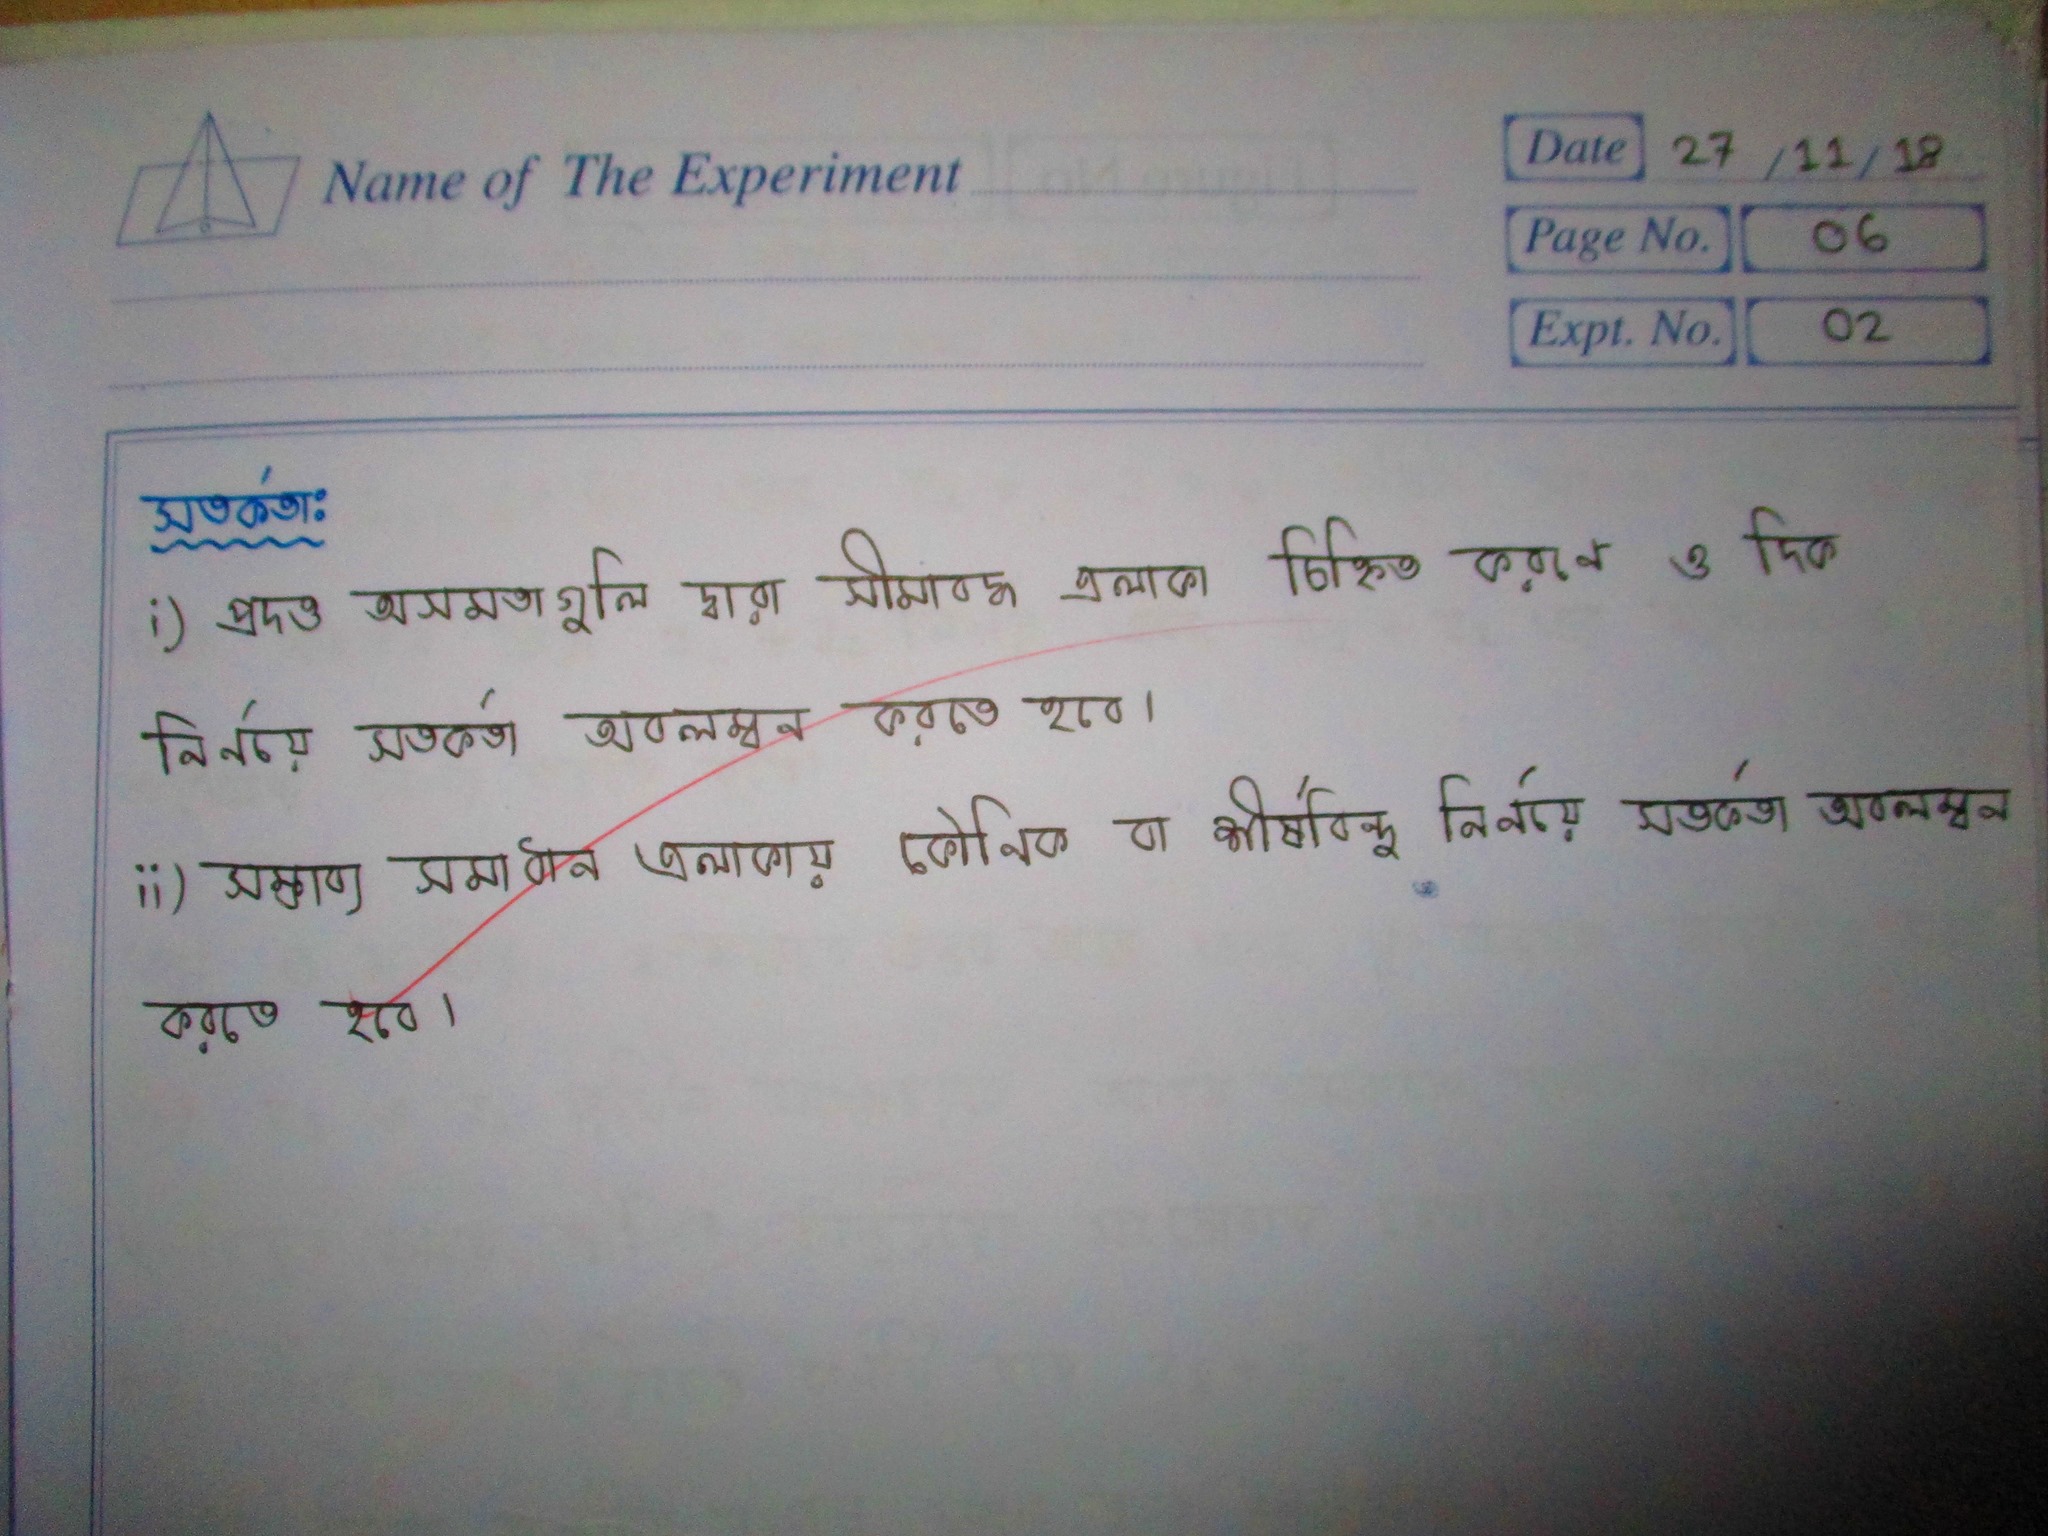 Name of The Experiment
Date 27/11/18
Page No. 06
Expt. No. 02
সতর্কতাঃ
i) প্রদত্ত অসমতাগুলি দ্বারা সীমাবদ্ধ এলাকা চিহ্নিত করনে ও দিক
নির্নয়ে সতর্কতা অবলম্বন করতে হবে।
ii) সম্ভাব্য সমাধান এলাকায় কৌনিক বা শীর্ষবিন্দু নির্নয়ে সতর্কতা অবলম্বন
করতে হবে।